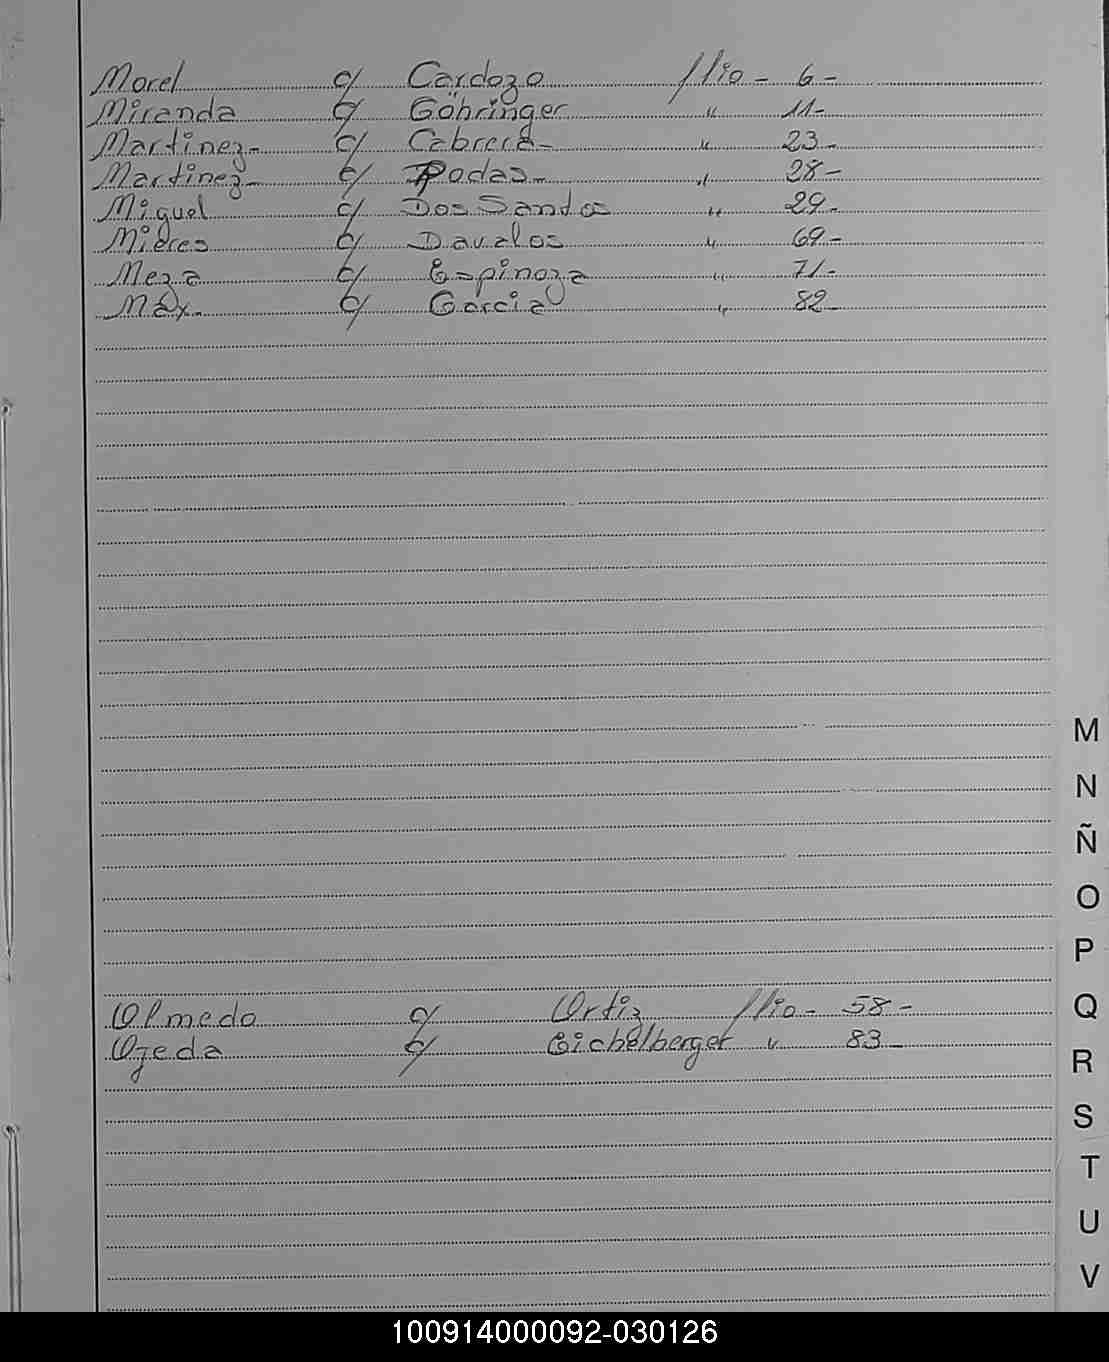 Morel c/ Cardozo flio - 6 -
Miranda c/ Göhringer " 11-
Martinez- c/ Cabrera- " 23-
Martinez- c/ Rodas- " 28-
Miguel c/ Dos Santos " 29-
Mieres c/ Davalos " 69-
Meza c/ Espinoza " 71-
Max- c/ Garcia " 82-
M
N
Ñ
O
P
Olmedo c/ Ortiz flio - 58 -
Q
Ojeda c/ Eichelberger " 83-
R
S
T
U
V
100914000092-030126